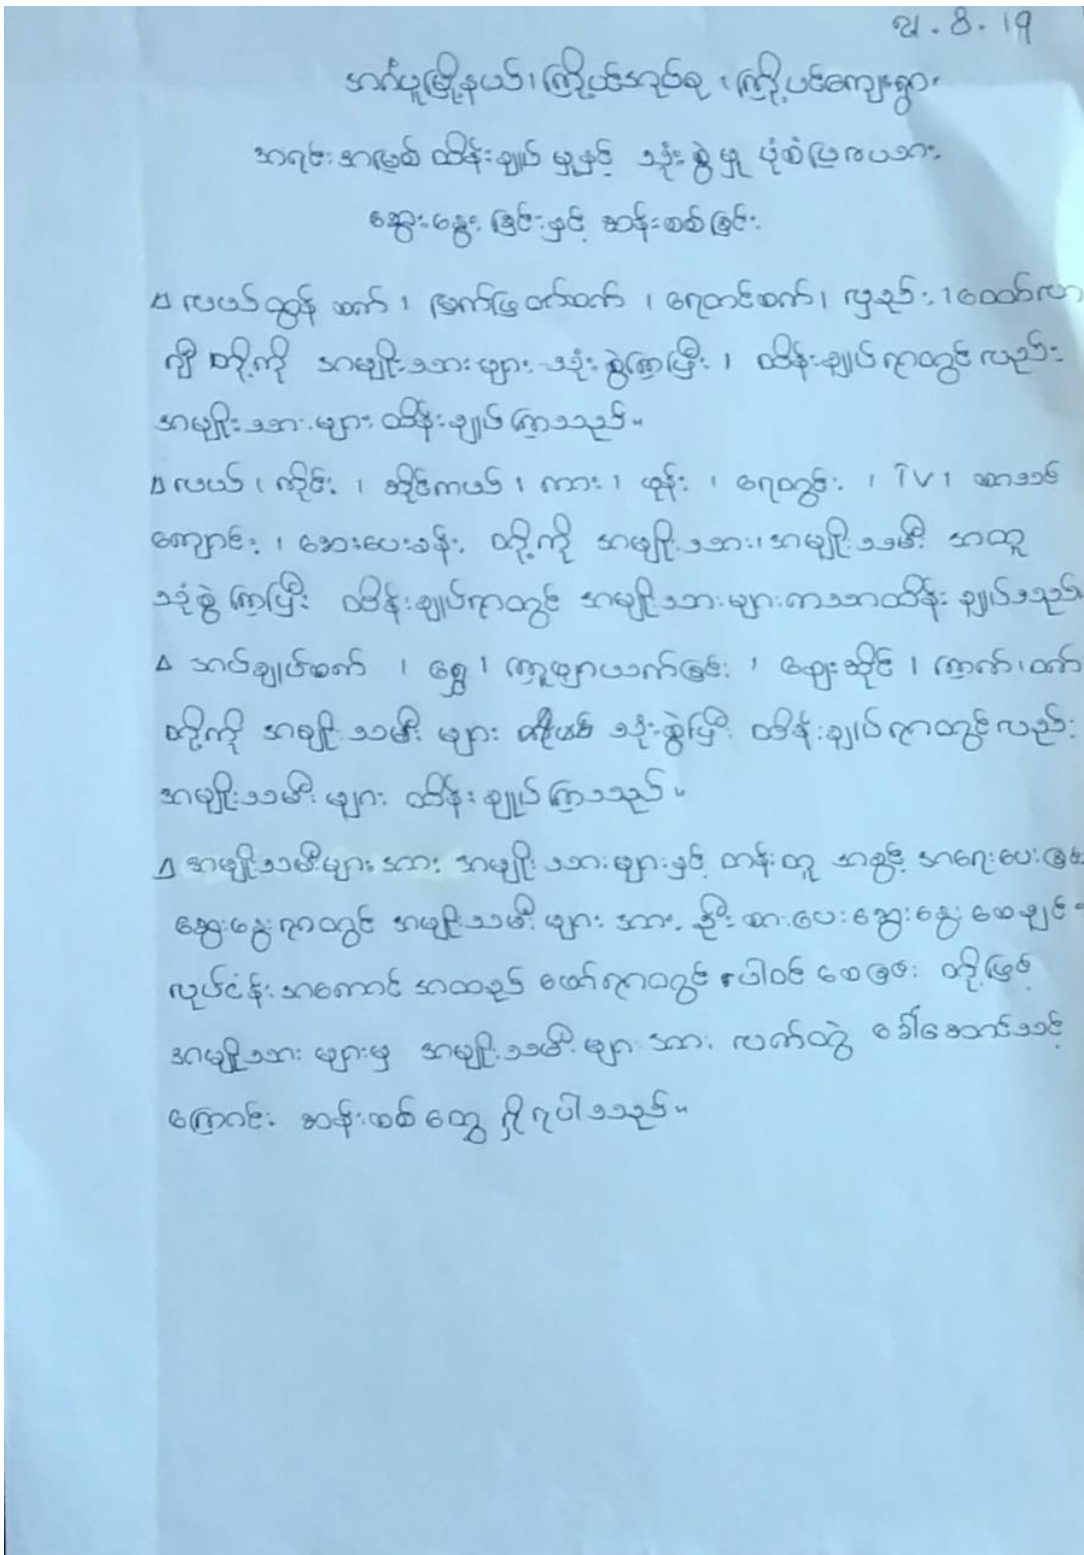 ၃၊ . 8 . 19
အင်္ဂပူမြို့နယ်၊ ကြို့ပင်အုပ်စု ၊ ကြို့ပင်ကျေးရွာ၊
အရင်းအမြစ် ထိန်းချုပ် မှုနှင့် သုံးစွဲမှု ပုံစံပြဇယား
ဆွေးနွေးခြင်းနှင့် ဆန်းစစ်ခြင်း
Δ လယ်ထွန် စက် ၊ မြက်ဖြတ်စက် ၊ ရေတင်စက်၊ လှည်း ၊ ထော်လာ
ဂျီ တို့ကို အမျိုးသားများ သုံးစွဲကြပြီး ၊ ထိန်းချုပ်ရာတွင်လည်း
အမျိုးသားများ ထိန်းချုပ်ကြသည်။
Δ လယ် ၊ ကိုင်း ၊ ဆိုင်ကယ် ၊ ကား ၊ ဖုန်း ၊ ရေတွင်း ၊ TV ၊ စာသင်
ကျောင်း ၊ ဆေးပေးခန်း တို့ကို အမျိုးသား၊ အမျိုးသမီး အတူ
သုံးစွဲကြပြီး ထိန်းချုပ်ရာတွင် အမျိုးသားများကသာထိန်းချုပ်သည်
Δ အပ်ချုပ်စက် ၊ ရွှေ ၊ ဖျာယက်ခြင်း ၊ ဈေးဆိုင် ၊ ကြက် ၊ ဝက်
တို့ကို အမျိုးသမီး များ သုံးစွဲပြီး ထိန်းချုပ်ရာတွင်လည်း
အမျိုးသမီးများ ထိန်းချုပ်ကြသည်။
Δ အမျိုးသမီးများအား အမျိုးသားများနှင့် တန်းတူ အခွင့် အရေးပေးခြင်း
ဆွေးနွေးရာတွင် အမျိုးသမီးများ အား ဦးစားပေးဆွေးနွေးစေချင်း
လုပ်ငန်းအကောင် အထည် ဖော်ရာတွင် ပါဝင် စေခြင်း တို့ဖြင့်
အမျိုးသားများမှ အမျိုးသမီးများအား လက်တွဲ ခေါ်ဆောင်သင့်
ကြောင်း ဆန်းစစ်တွေ့ ရှိရပါသည်။